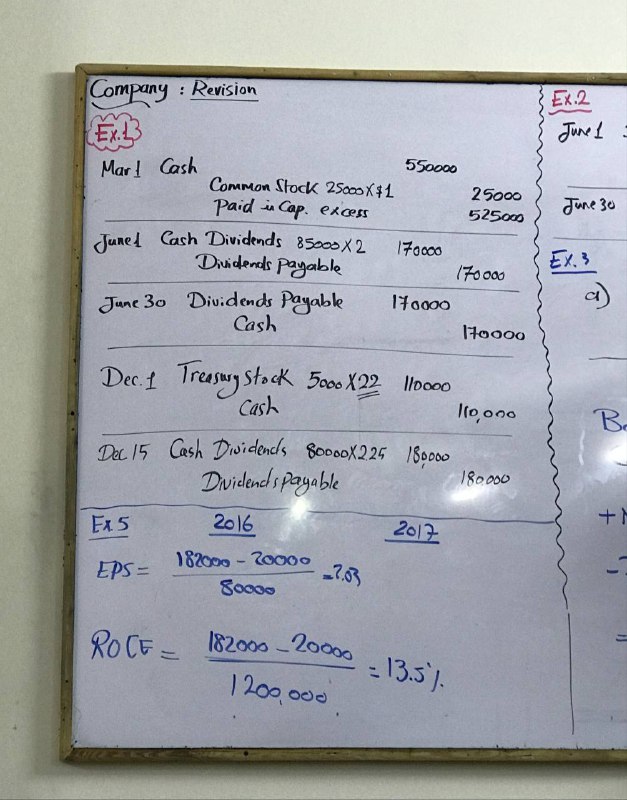 Company : Revision
Ex.1
Mar 1 Cash 550000
Common Stock 25000 X $1 25000
Paid in Cap. excess 525000
June 1 Cash Dividends 85000 X 2 170000
Dividends Payable 170000
June 30 Dividends Payable 170000
Cash 170000
Dec. 1 Treasury Stock 5000 X 22 110000
Cash 110,000
Dec 15 Cash Dividends 80000 X 2.25 180,000
Dividends Payable 180000
Ex 5 2016 2017
EPS = 182000 - 20000
80000
= 2.03
ROCE = 182000 - 20000
1200,000
= 13.5%
Ex.2
June 1
June 30
Ex. 3
a)
+
-
=